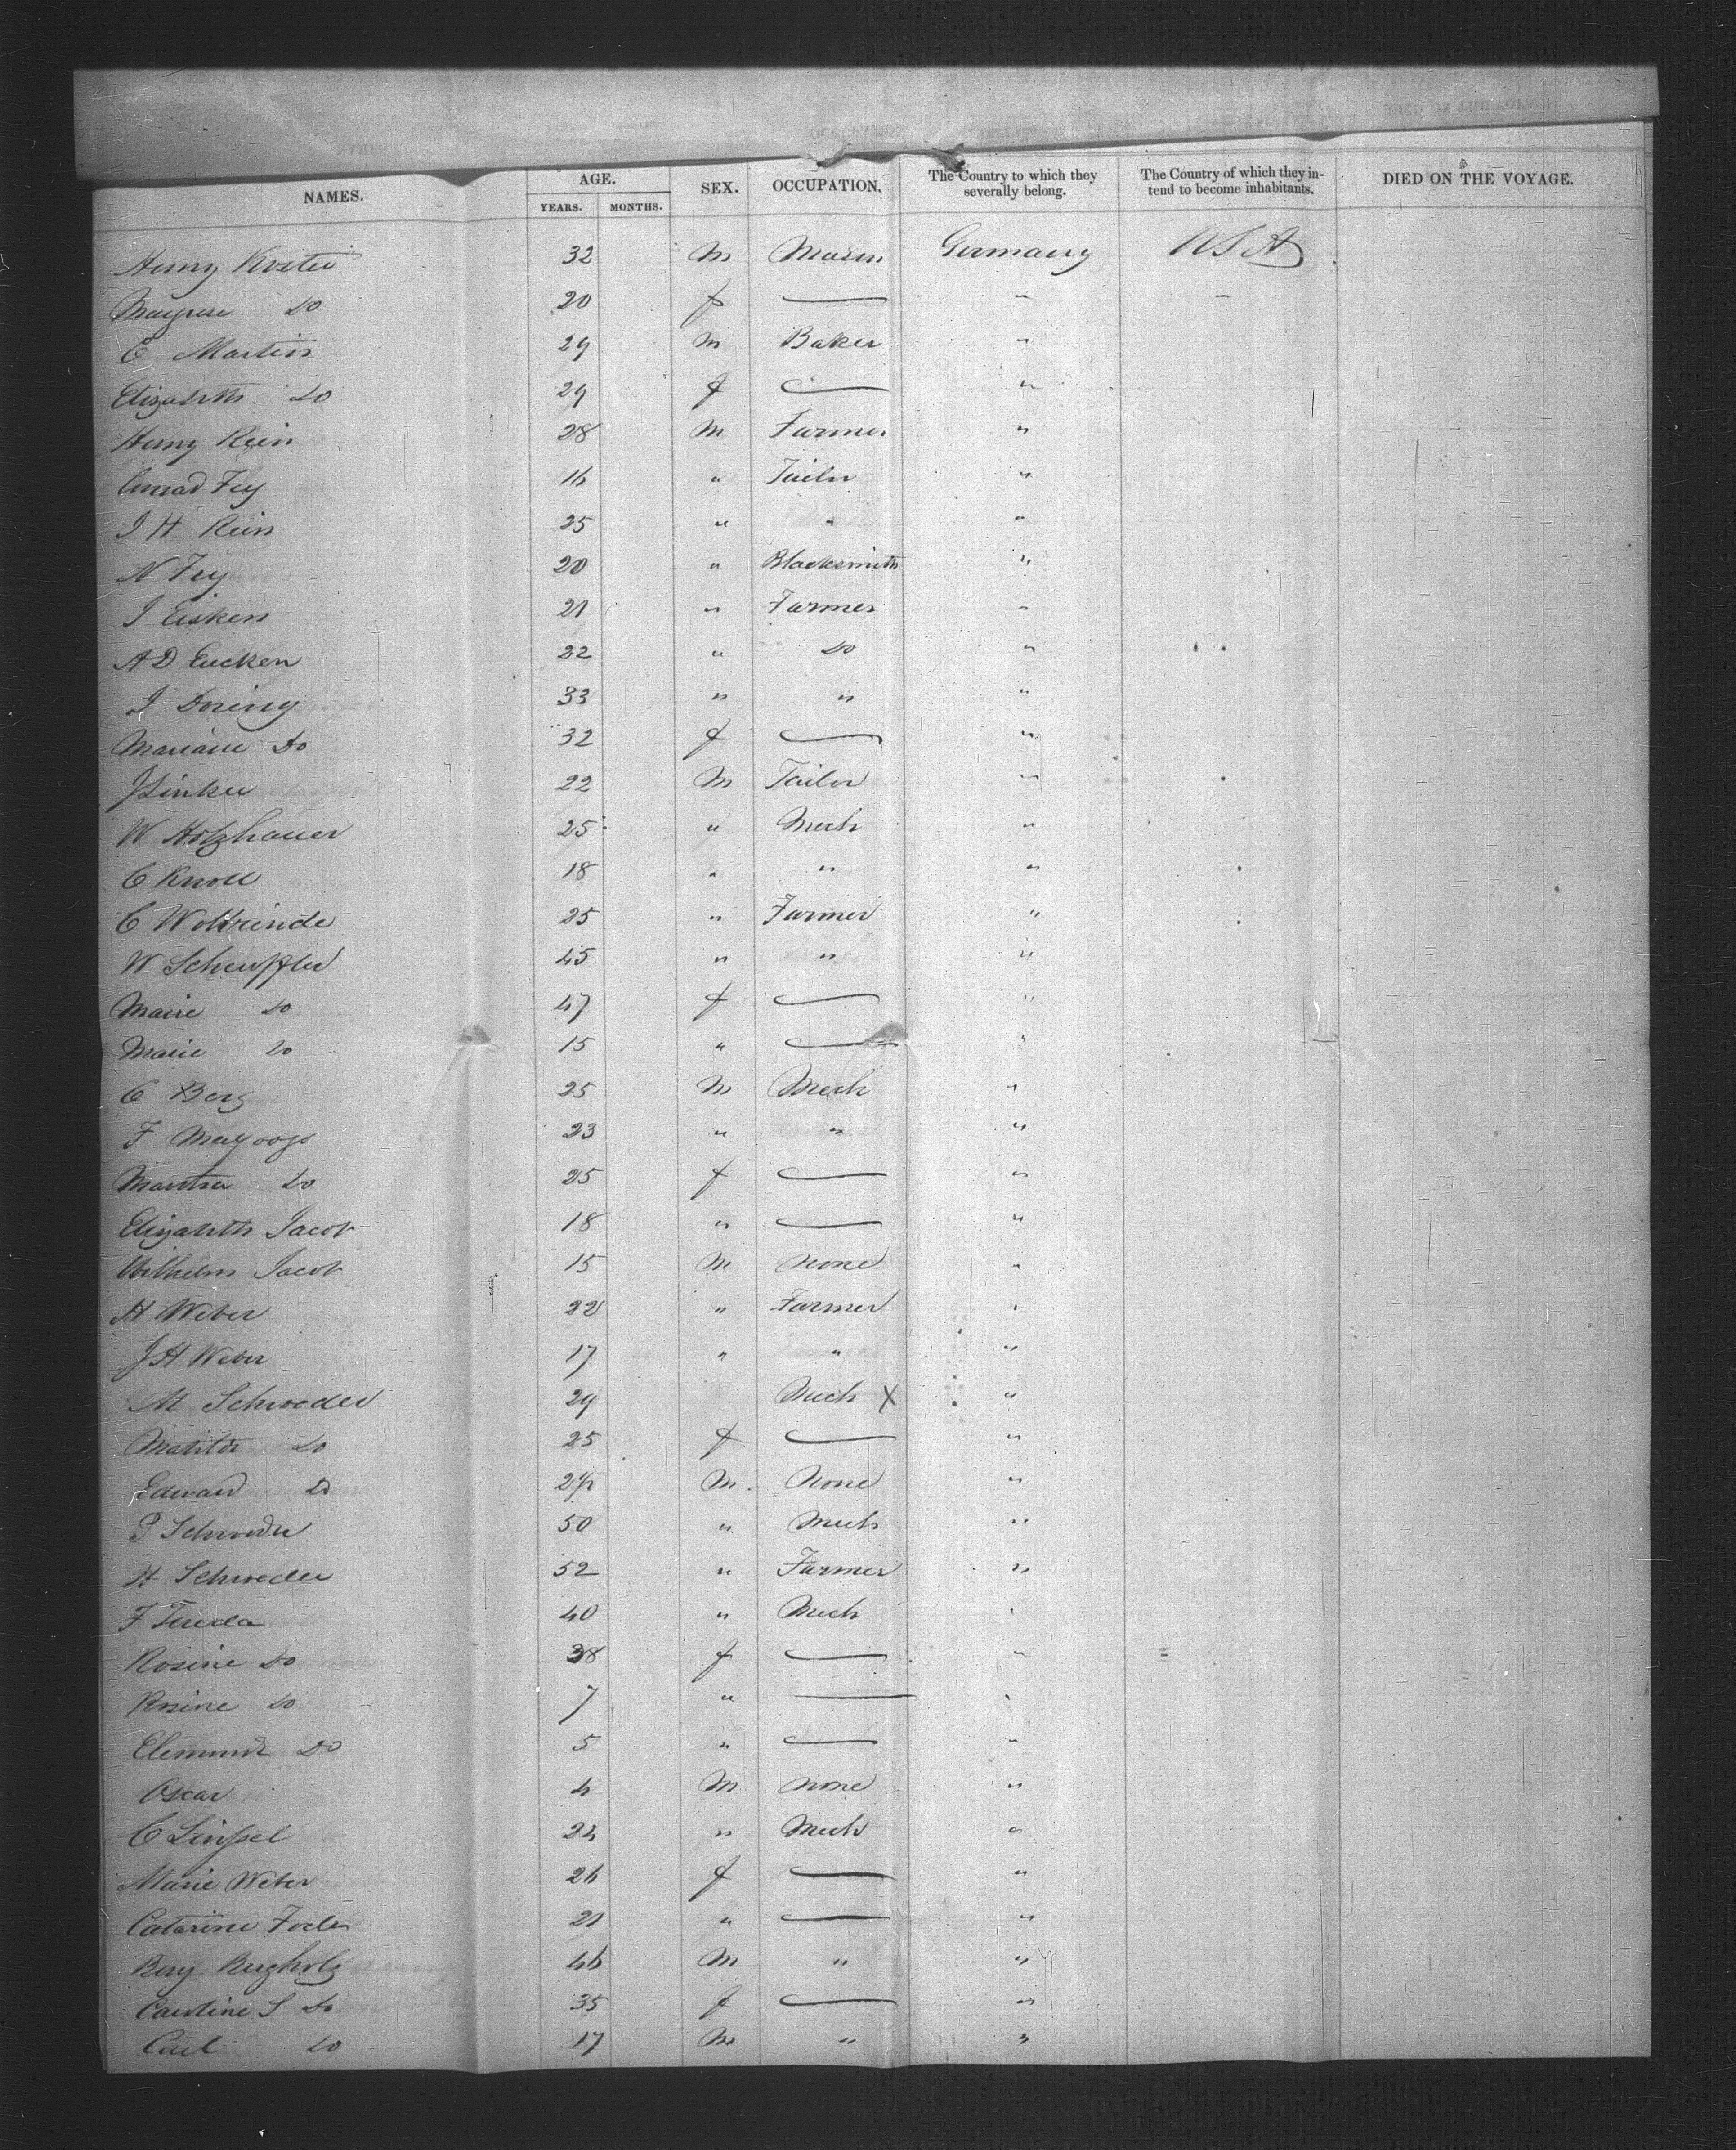 NAMES. AGE. SEX. OCCUPATION. The Country to which they severally belong. The Country of which they intend to become inhabitants. DIED ON THE VOYAGE.
YEARS. MONTHS.
Henry 32 M Mason Germany USA
Do 20 f — " "
C Martin 29 M Baker "
Elizabeth Do 29 f — "
Henry Rein 28 M Farmer "
Conrad Fey 16 " Tailor "
J H Rein 25 " " "
N Fey 20 " Blacksmith "
J Eisken 21 " Farmer "
A D Eucken 22 " Do "
J Doring 33 " " "
Mariane Do 32 f — "
J Linker 22 M Tailor "
W Holzhauer 25 " Mech "
C Knoll 18 " " "
C 25 " Farmer "
W Scheuffler 45 " " "
Marie Do 47 f — "
Marie Do 15 " — "
C Berg 25 M Mech "
F 23 " " "
Martha Do 25 f — "
Elizabeth Jacob 18 " — "
Wilhelm Jacob 15 M None "
H Weber 22 " Farmer "
J H Weber 17 " " "
M Schroeder 29 Mech X "
Matilde Do 25 f — "
Edward Do M None "
P Schroeder 50 " Mech "
H Schroeder 52 " Farmer "
F 40 " Mech "
Rosine Do 38 f — "
Rosine Do 7 " — "
Do 5 " — "
Oscar 4 M None "
C 24 " Mech "
Marie Weber 26 f — "
Catarine 21 " — "
Bergholz 46 M " "
Caroline S Do 35 f — "
Carl Do 17 M " "